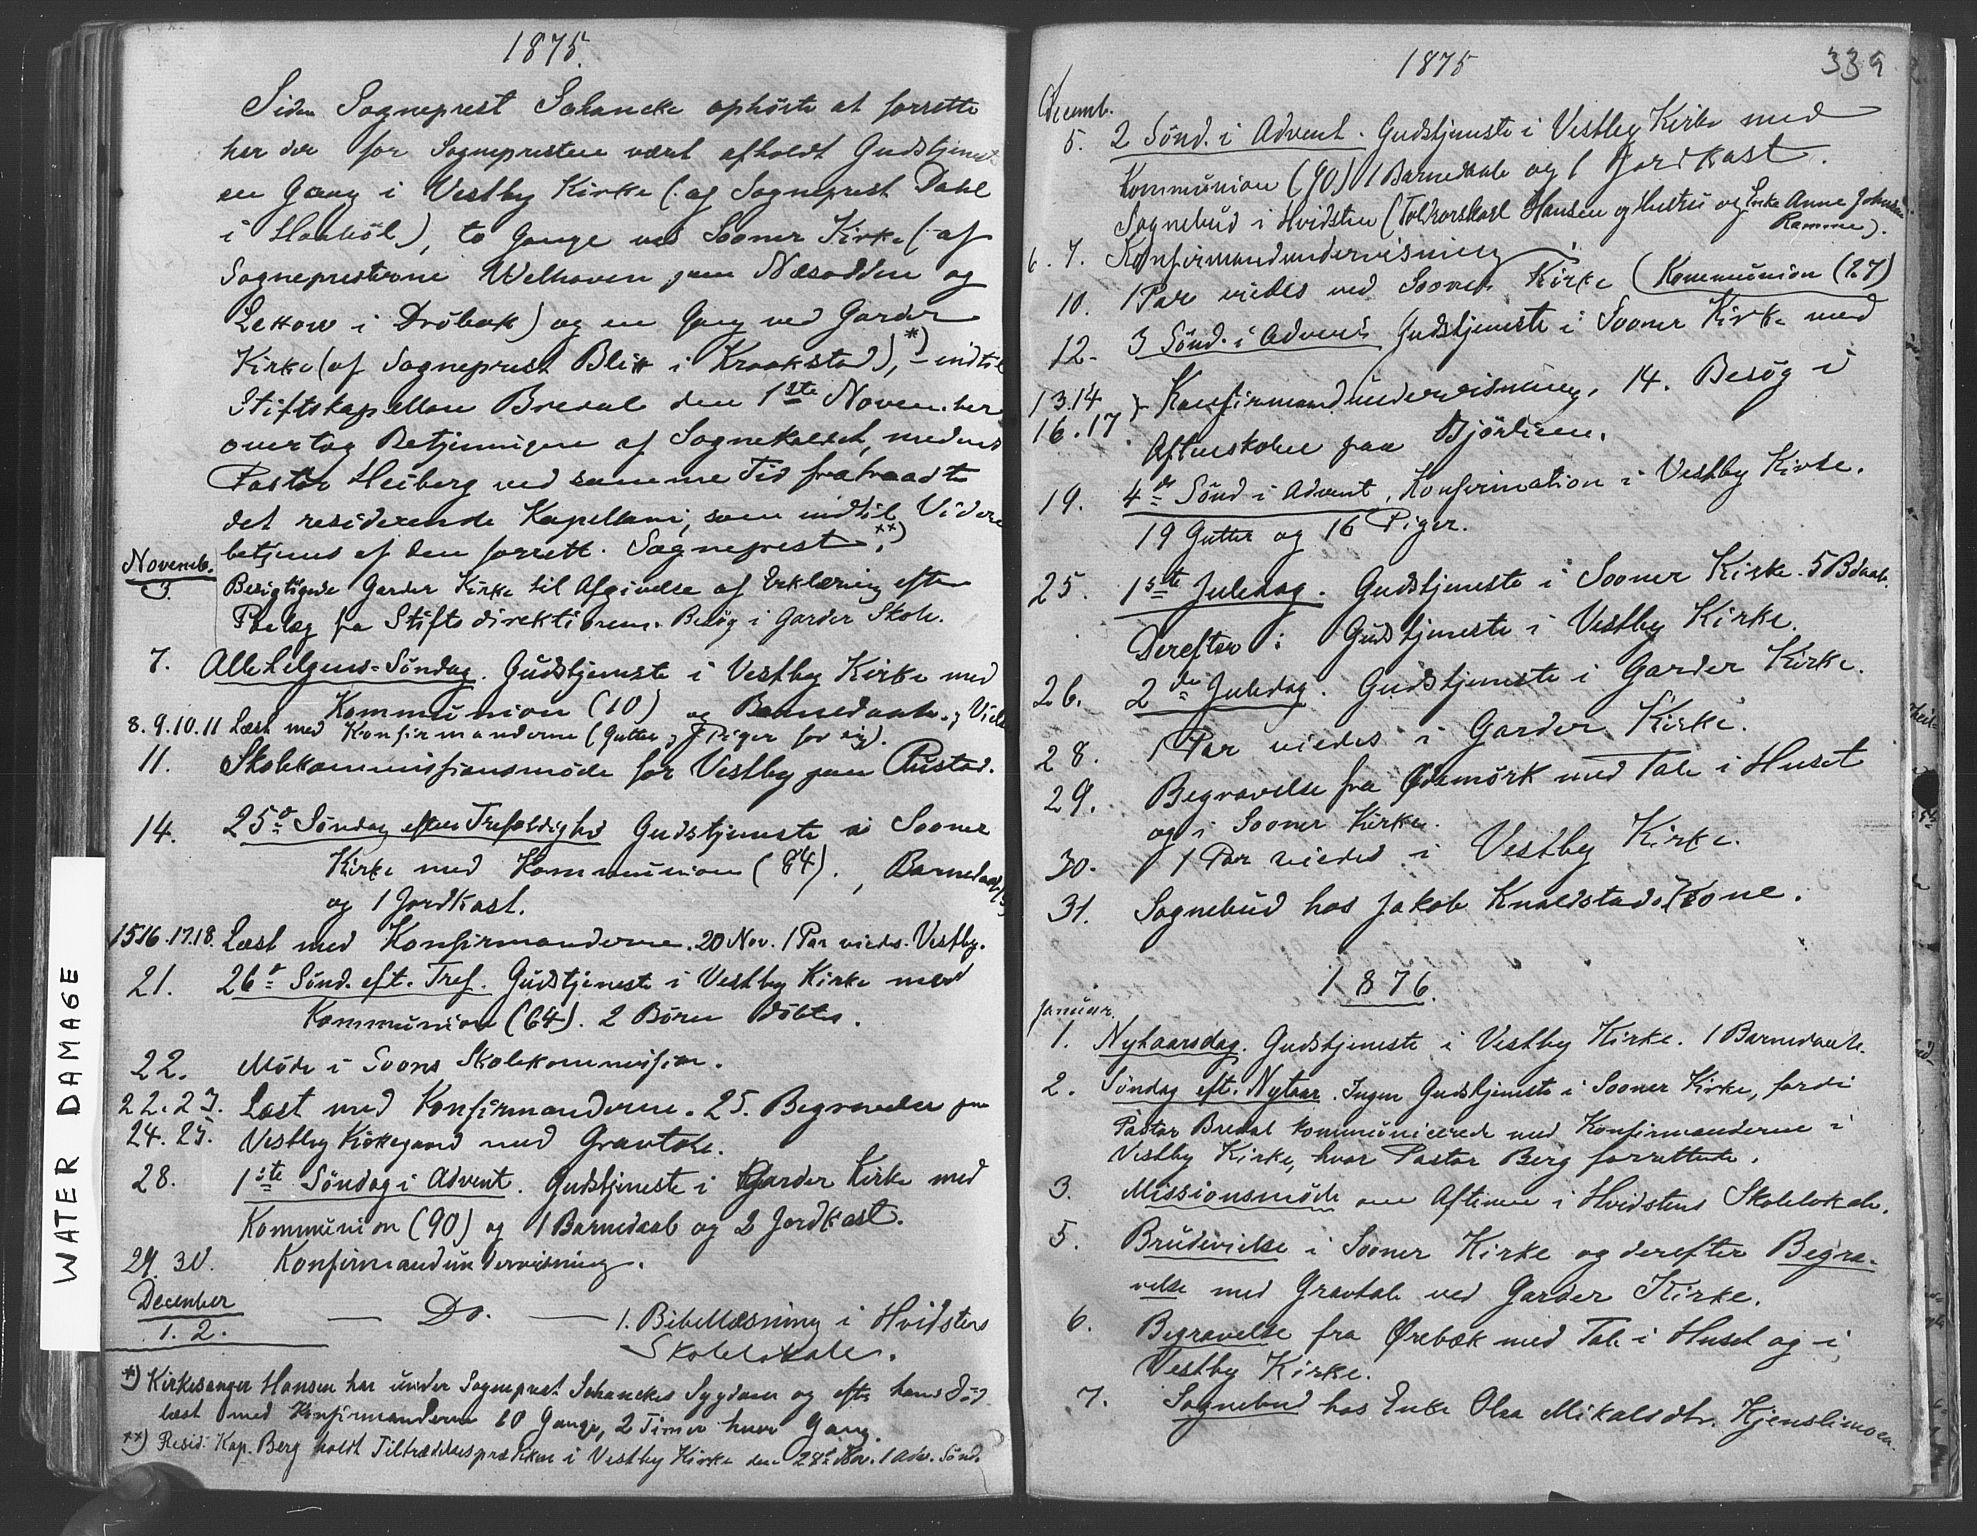 1875.
Siden Sogneprest Schancke ophørte at forrette
her der for Sognepresten vært afholdt Gudstjenest
en Gang i Vestby Kirke (: af Sogneprest Dahl
i Haabøl), to Gange ved Sooner Kirke (: af
Sognepresterne Welhaven paa Næsodden og
i Drøbak) og en Gang ved Garder
Kirke (af Sogneprest Blix i Kraakstad), *) – indtil
Stiftskapellan Bredal den 1ste November
overtog Betjeningen af Sognekaldet, medens
Pastor Heiberg ved samme Tid fratraadte
det residerende Kapellani, som indtil Videre
betjenes af den forrett. Sogneprest. **)
Novemb.
3. Besigtigede Garder Kirke til Afgivelse af Erklæring efter
Paalæg fra Stiftsdirektionen. Besøg i Garder Skole.
7. Allehelgens-Søndag. Gudstjeneste i Vestby Kirke med
Kommunion (10) og Barnedaab.
8. 9. 10. 11 Læst med Konfirmanderne (Gutter & Piger for sig).
11. Skolekommissionsmøde for Vestby paa Rustad.
14. 25de Søndag efter Trefoldighed Gudstjeneste i Sooner
Kirke med Kommunion (84), Barnedaab
og 1 Jordkast.
15 16. 17. 18. Læst med Konfirmanderne. 20 Nov. 1 Par viedes. Vestby.
21. 26de Sønd. eft. Tref. Gudstjeneste i Vestby Kirke med
Kommunion (64). 2 Børn døbtes.
22. Møde i Soons Skolekommission.
22. 23. Læst med Konfirmanderne. 25. Begravelse paa
24. 25. Vestby Kirkegaard med Gravtale.
28. 1ste Søndag i Advent. Gudstjeneste i Garder Kirke med
Kommunion (90) og 1 Barnedaab og 2 Jordkast.
29. 30. Konfirmandundervisning.
December
1. 2. — Do. — 1. Bibellæsning i Hvidstens
Skolelokale.
*) Kirkesanger Hansen har under Sogneprest Schanckes Sygdom og efter hans Død
læst med Konfirmanderne 10 Gange, 2 Timer hver Gang.
**) Resid. Kap. Berg holdt Tiltrædelsesprædiken i Vestby Kirke den 28de Nov. 1 Adv. Sønd.
WATER DAMAGE
1875
339
Decemb.
5. 2 Sønd. i Advent. Gudstjeneste i Vestby Kirke med
Kommunion (90) 1 Barnedaab og 1 Jordkast.
Sognebud i Hvidsten (Toldroerskarl Hansen og Hustru og Enke Anne Johnsen
Ramme).
6. 7. Konfirmandundervisning
10. 1 Par viedes ved Sooner Kirke (Kommunion (27)
12. 3 Sønd. i Advent Gudstjeneste i Sooner Kirke med
13. 14 } Konfirmandundervisning, 14. Besøg i
16. 17. Aftenskolen paa Bjørlien.
19. 4de Sønd i Advent, Konfirmation i Vestby Kirke.
19 Gutter og 16 Piger.
25. 1ste Juledag. Gudstjeneste i Sooner Kirke. 5 Bdaab.
Derefter: Gudstjeneste i Vestby Kirke.
26. 2de Juledag. Gudstjeneste i Garder Kirke.
28. 1 Par viedes i Garder Kirke.
29. Begravelse fra Ødemørk med Tale i Huset
og i Sooner Kirke.
30. 1 Par viedes i Vestby Kirke.
31. Sognebud hos Jakob Knaldstads Kone.
1876.
Januar.
1. Nytaarsdag. Gudstjeneste i Vestby Kirke. 1 Barnedaab.
2. Søndag eft. Nytaar. Ingen Gudstjeneste i Sooner Kirke, fordi
Pastor Bredal kommunicerede med Konfirmanderne i
Vestby Kirke, hvor Pastor Berg forrettede.
3. Missionsmøde om Aftenen i Hvidstens Skolelokale.
5. Brudevielse i Sooner Kirke og derefter Begra-
velse med Gravtale ved Garder Kirke.
6. Begravelse fra Ørebæk med Tale i Huset og i
Vestby Kirke.
7. Sognebud hos Enke Olea Mikalsdtr. Kjenslimoen